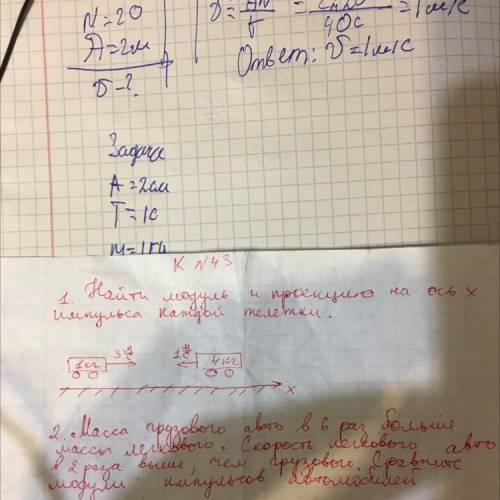 N=20
A=2м
v-?
v= = =1м/с
40с
Ответ: v=1м/с
Задача
A=2см
T=1с
m=1кг
К №43
1. Найти модуль и проекцию на ось x
импульса каждой тележки.
1кг 3 м/с 1 м/с 4кг
x
2. Масса грузового авто в 6 раз больше
массы легкового. Скорость легкового авто
в 2 раза выше, чем грузового. Сравните
модули импульсов автомобилей